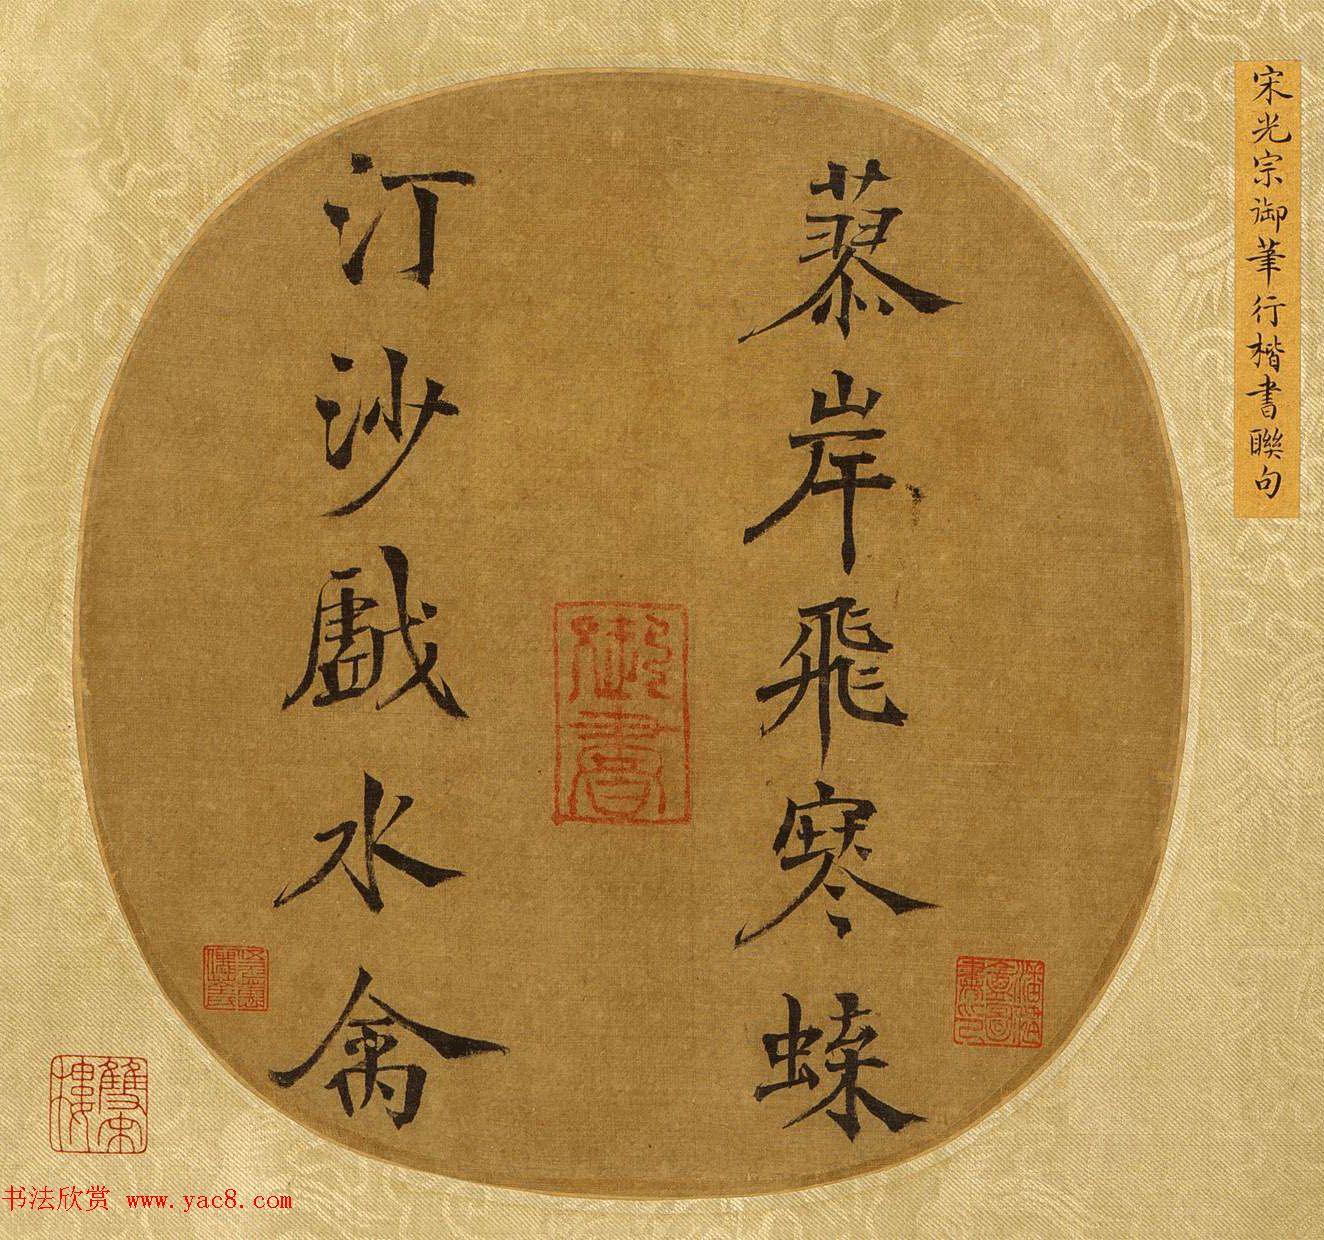 宋光宗御筆行楷書聯句
蓼岸飛寒蝶
汀沙戲水禽
御書
雙宋樓
书法欣赏 www.yac8.com